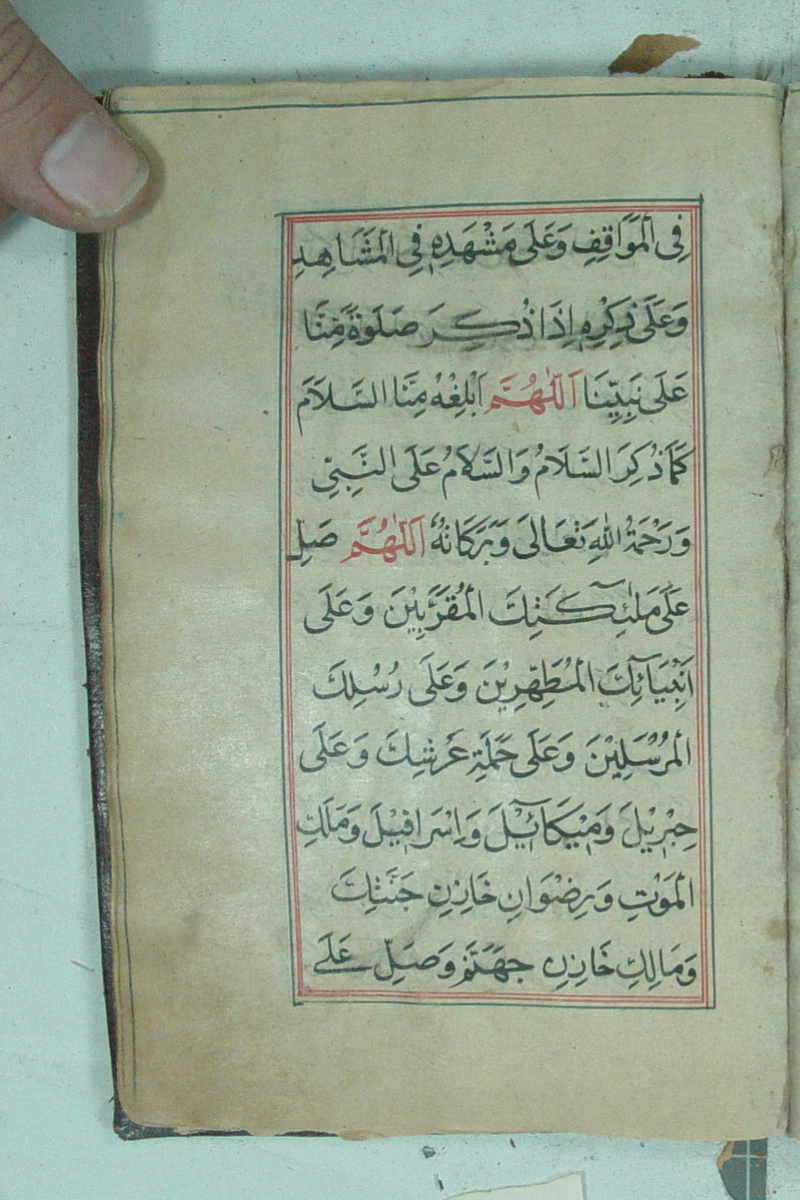 فِى الْمَوَاقِفِ وَعَلَى مَشْهَدِهٖ فِى الْمَشَاهِدِ
وَعَلَى ذِكْرِهٖ اِذَا ذُكِرَ صَلٰوةً مِّنَّا
عَلَى نَبِيِّنَا اَللّٰهُمَّ اَبْلِغْهُ مِنَّا السَّلَامَ
كَمَا ذُكِرَ السَّلَامُ وَالسَّلَامُ عَلَى النَّبِىِّ
وَرَحْمَةُ اللهِ تَعَالَى وَبَرَكَاتُهُ اَللّٰهُمَّ صَلِّ
عَلَى مَلٰئِكَتِكَ الْمُقَرَّبِيْنَ وَعَلَى
اَنْبِيَائِكَ الْمُطَهَّرِيْنَ وَعَلَى رُسُلِكَ
الْمُرْسَلِيْنَ وَعَلَى حَمَلَةِ عَرْشِكَ وَعَلَى
جِبْرِيْلَ وَمِيْكَائِيْلَ وَاِسْرَافِيْلَ وَمَلَكِ
الْمَوْتِ وَرِضْوَانِ خَازِنِ جَنَّتِكَ
وَمَالِكِ خَازِنِ جَهَنَّمَ وَصَلِّ عَلَى